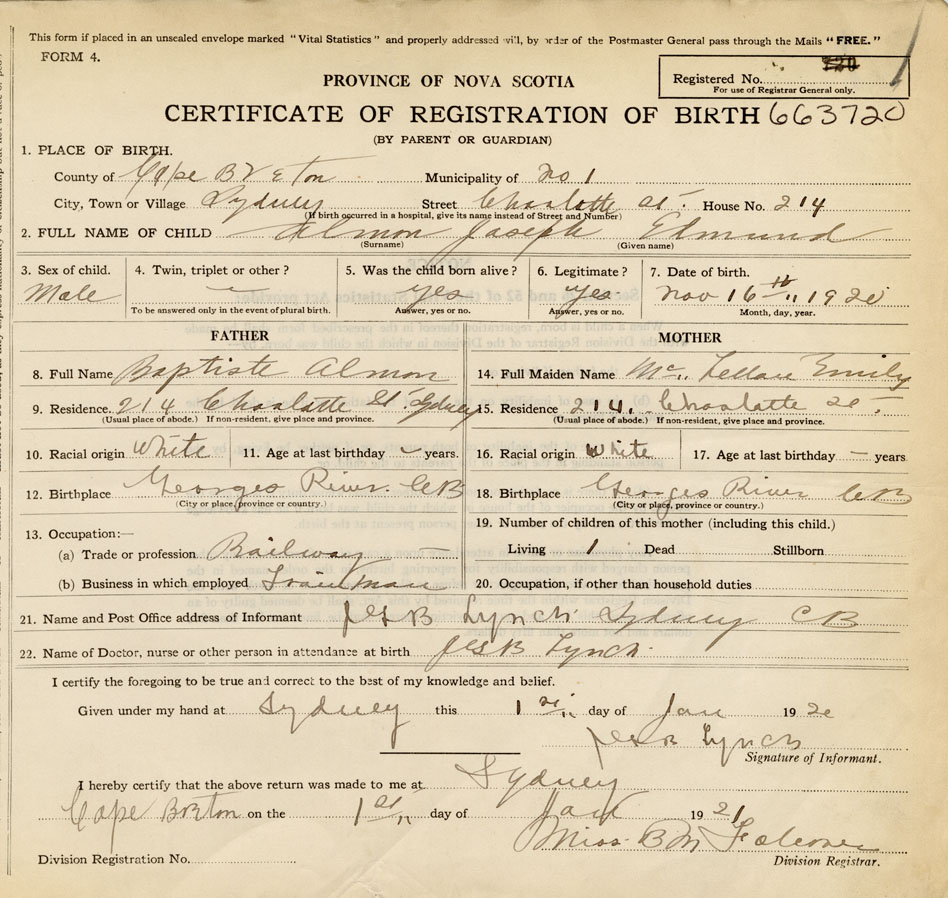 This form if placed in an unsealed envelope marked "Vital Statistics" and properly addressed will, by order of the Postmaster General pass through the Mails "FREE."
FORM 4.
720
Registered No.
For use of Registrar General only.
PROVINCE OF NOVA SCOTIA
CERTIFICATE OF REGISTRATION OF BIRTH 663720
(BY PARENT OR GUARDIAN)
1. PLACE OF BIRTH.
County of Cape Breton Municipality of No 1
City, Town or Village Sydney Street Charlotte St. House No. 214
(If birth occurred in a hospital, give its name instead of Street and Number)
2. FULL NAME OF CHILD Almon Joseph Edmund
(Surname) (Given name)
3. Sex of child. 4. Twin, triplet or other? 5. Was the child born alive? 6. Legitimate? 7. Date of birth.
Male — yes yes Nov 16th 1920
To be answered only in the event of plural birth. Answer, yes or no. Answer, yes or no. Month, day, year.
FATHER MOTHER
8. Full Name Baptiste Almon 14. Full Maiden Name Mc Lellan Emily
9. Residence. 214 Charlotte St Sydney 15. Residence 214. Charlotte St.
(Usual place of abode.) If non-resident, give place and province. (Usual place of abode.) If non-resident, give place and province.
10. Racial origin White 11. Age at last birthday – years. 16. Racial origin White 17. Age at last birthday – years
12. Birthplace Georges River. CB 18. Birthplace Georges River CB
(City or place, province or country.) (City or place, province or country.)
13. Occupation:— 19. Number of children of this mother (including this child.)
(a) Trade or profession Railway — Living 1 Dead Stillborn
(b) Business in which employed Trainman 20. Occupation, if other than household duties
21. Name and Post Office address of Informant JGB Lynch Sydney CB
22. Name of Doctor, nurse or other person in attendance at birth JGB Lynch.
I certify the foregoing to be true and correct to the best of my knowledge and belief.
Given under my hand at Sydney this 1st day of Jan 1920
JGB Lynch
Signature of Informant.
I hereby certify that the above return was made to me at Sydney
Cape Breton on the 1st day of Jan 1921
Miss. B M Falconer
Division Registration No. Division Registrar.